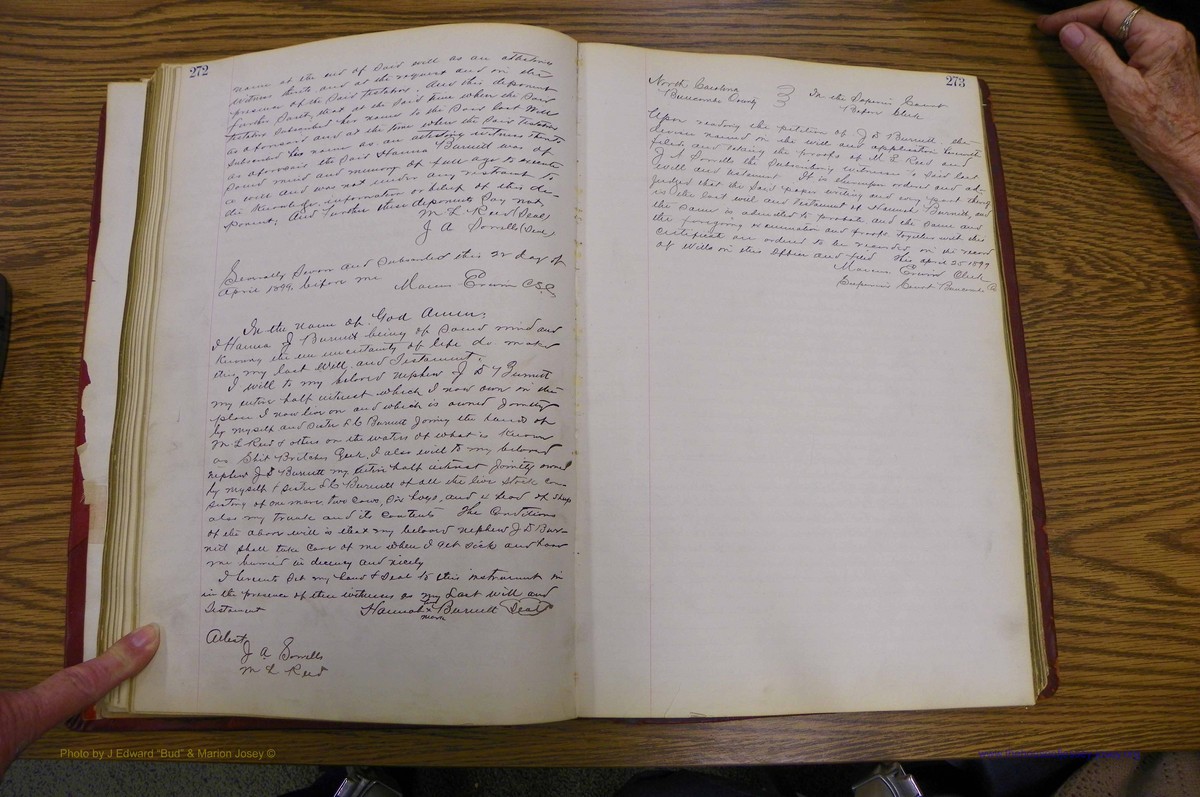 272
name at the end of said will as an attesting
witness thereto and at the request and in the
presence of the said testator. And this deponent
further saith, that at the said time when the said
testator subscribed his name to the said last Will
as aforesaid and at the time when the said testator
subscribed his name as an attesting witness thereto
as aforesaid the said Hanna Burnett was of
sound mind and memory of full age to execute
a will and was not under any restraint to
the knowledge, information or belief of this de-
ponent, And further these deponents say not,
M L Reed (Seal)
J A Sorrells (Seal)
Severally Sworn and Subscribed this 22 day of
April 1899, before me Marcus Erwin C S C
In the name of God Amen;
I Hanna J Burnett being of Sound mind and
Knowing the un uncertainty of life do make
this my last Will and Testament.
I will to my beloved nephew J D Burnett
my entire half interest which I now own in the
place I now live on and which is owned Jointly
by myself and Sister L C Burnett Joining the lands of
M L Reed & others on the waters of what is Known
as Shit Britches Creek, I also will to my beloved
nephew J D Burnett my entire half interest Jointly owned
by myself & Sister L C Burnett of all the live stock con-
sisting of one mare, two cows, Six hogs, and 4 head of Sheep
also my trunk and its contents The Conditions
of the above will is that my beloved nephew J D Bur-
nett shall take Care of me when I get Sick and have
me burried in decency and nicely
I hereunto Set my hand & Seal to this instrument in
in the presence of these witnesses as my Last will and
Testament Hannah x Burnett (Seal)
mark
Attest
J A Sorrells
M L Reed
273
North Carolina
Buncombe County
In the Superior Court
Before Clerk
Upon reading the petition of J D Burnett the
devisee named in the will and application herewith
filed, and taking the proofs of M L Reed and
J A Sorrells the Subscribing witnesses to said last
will and testament It is thereupon ordered and ad-
judged that the Said paper writing and every part thereof
is the last will and testament of Hannah Burnett, and
the Same is admitted to probate and the Same and
the foregoing examination and proofs together with this
certificate are ordered to be recorded in the record
of Wills in this Office and filed This April 25 1899
Marcus Erwin Clerk
Superior Court Buncombe Co
Photo by J Edward "Bud" & Marion Josey ©